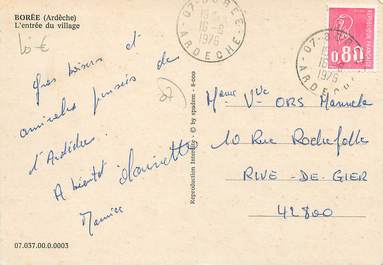 BORÉE (Ardèche)
L'entrée du village
10 €
07-BORÉE
16-8
1976
ARDÈCHE
07-BORÉE
16-8
1976
ARDÈCHE
0,80
Gros bisous et de
amicales pensées
d'Ardèche.
A bientôt
Maurice
07
Reproduction Interdite - © by spadem - 8-000
Mame Vve ORS Manuela
10 Rue Rochefolle
RIVE-DE-GIER
42800
07.037.00.0.0003